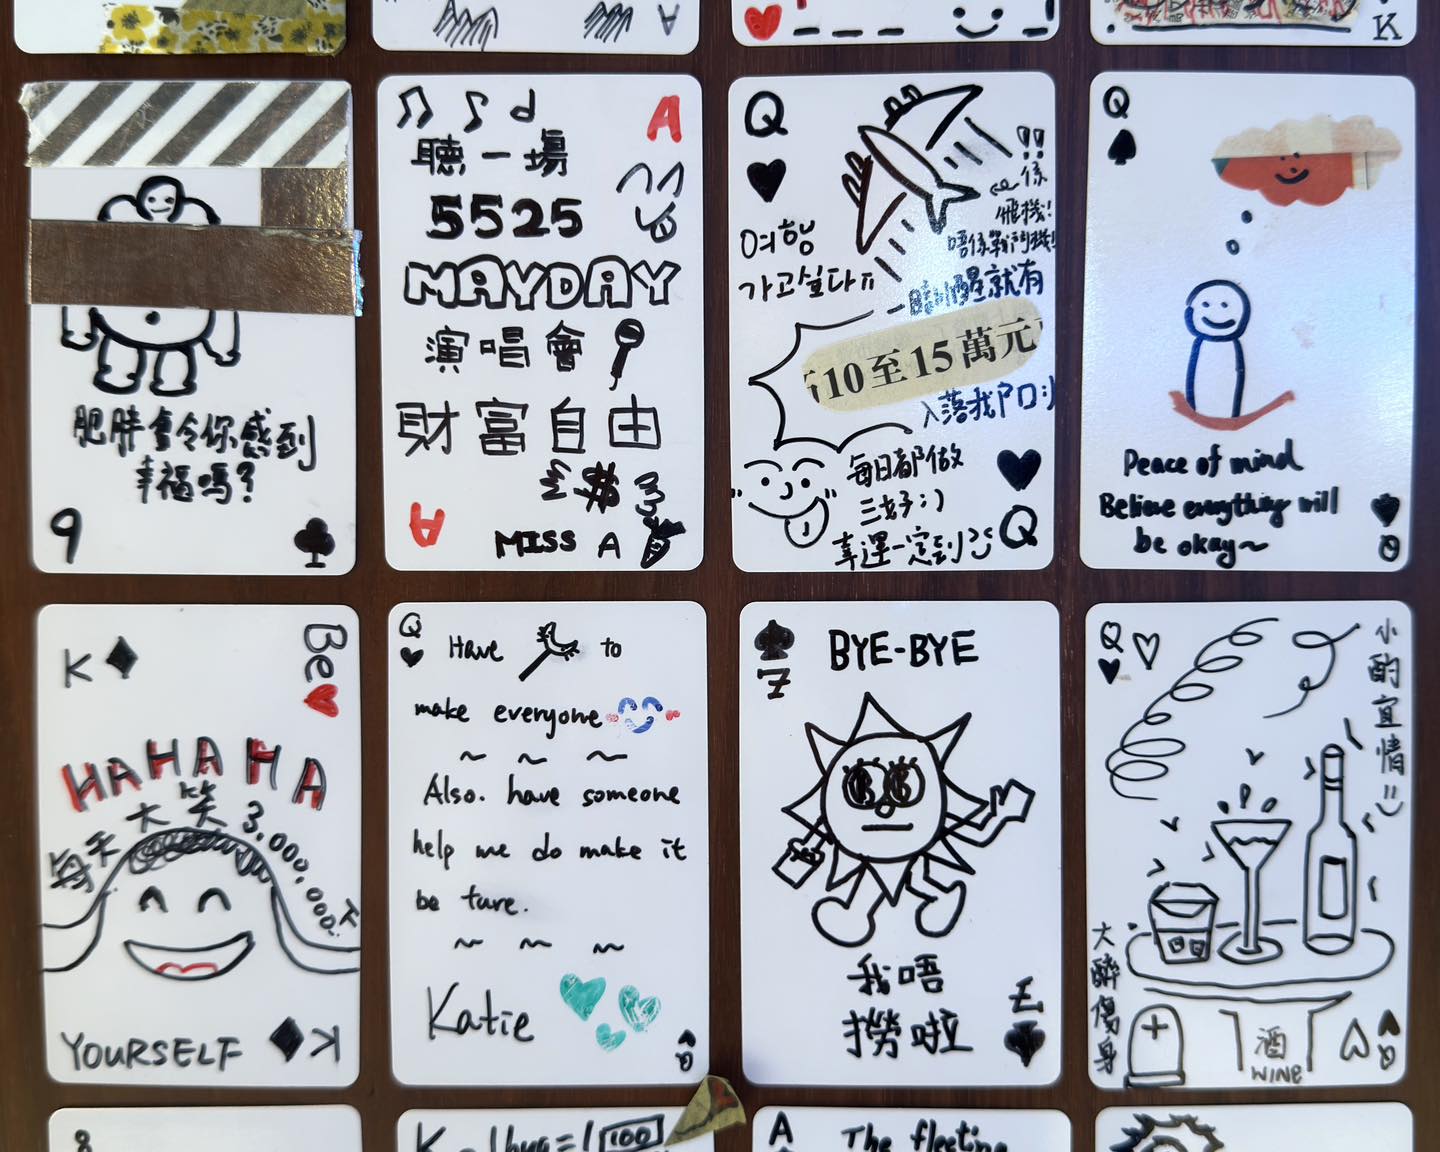 A
K
9
肥胖會令你感到
幸福嗎?
A
聽一場
5525
MAYDAY
演唱會
財富自由
MISS A
A
Q
여행
가고싶다ㅠ
係
飛機!
唔係戰鬥機!
一瞓醒就有
10至15萬元
入落我戶口
每日都做
三好:)
幸運一定到
Q
Q
Peace of mind
Believe everything will
be okay~
Q
K
Be
HAHAHA
每天大笑3,000,000下
YOURSELF
K
Q
Have to
make everyone
~ ~ ~
Also. have someone
help me do make it
be ture.
~ ~ ~
Katie
Q
7
BYE-BYE
我唔
撈啦
7
Q
小酌宜情
大醉傷身
酒
WINE
Q
8
100
A
The fleeting